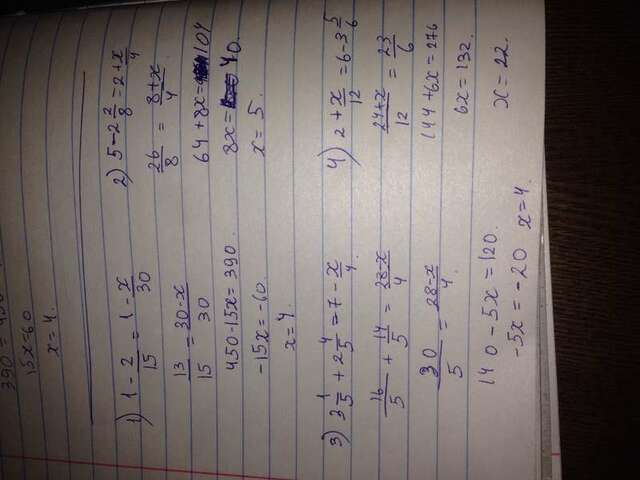 390 = 450
15x=60
x=4.
1) 1 - 2/15 = 1 - x/30
13/15 = 30-x/30
450-15x=390.
-15x=-60.
x=4.
2) 5-2 2/8 = 2+x/4
26/8 = 8+x/4
64+8x=104
8x=40.
x=5.
3) 3 1/5 + 2 4/5 = 7 - x/4.
16/5 + 14/5 = 28-x/4
30/5 = 28-x/4.
140-5x=120.
-5x=-20 x=4.
4) 2+x/12 = 6-3 5/6
24+x/12 = 23/6
144+6x=276
6x=132.
x=22.